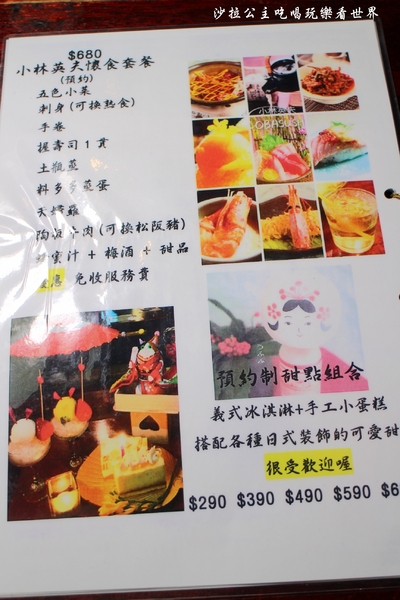 沙拉公主吃喝玩樂看世界
$680
小林英夫懷食套餐
(預約)
五色小菜
刺身(可換熟食)
手卷
握壽司1貫
土瓶蒸
料多多蒸蛋
天婦羅
陶板牛肉(可換松阪豬)
蜜汁 + 梅酒 + 甜品
免收服務費
OBASUSHI
預約制甜點組合
義式冰淇淋+手工小蛋糕
搭配各種日式裝飾的可愛甜
很受歡迎喔
$290 $390 $490 $590 $6